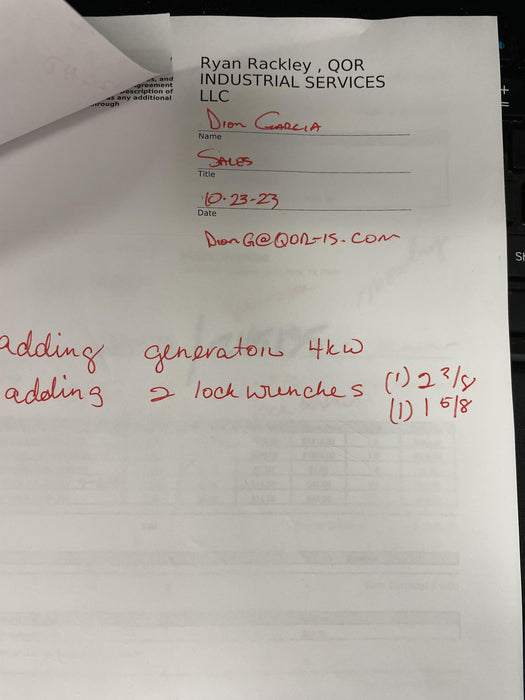 s, and
agreement
description of
as any additional
hrough
Ryan Rackley , QOR
INDUSTRIAL SERVICES
LLC
Dion Garcia
Name
Sales
Title
10-23-23
Date
DionG@QOR-IS.com
adding generator 4kw
adding 2 lock wrenches (1) 2 3/8
(1) 1 5/8